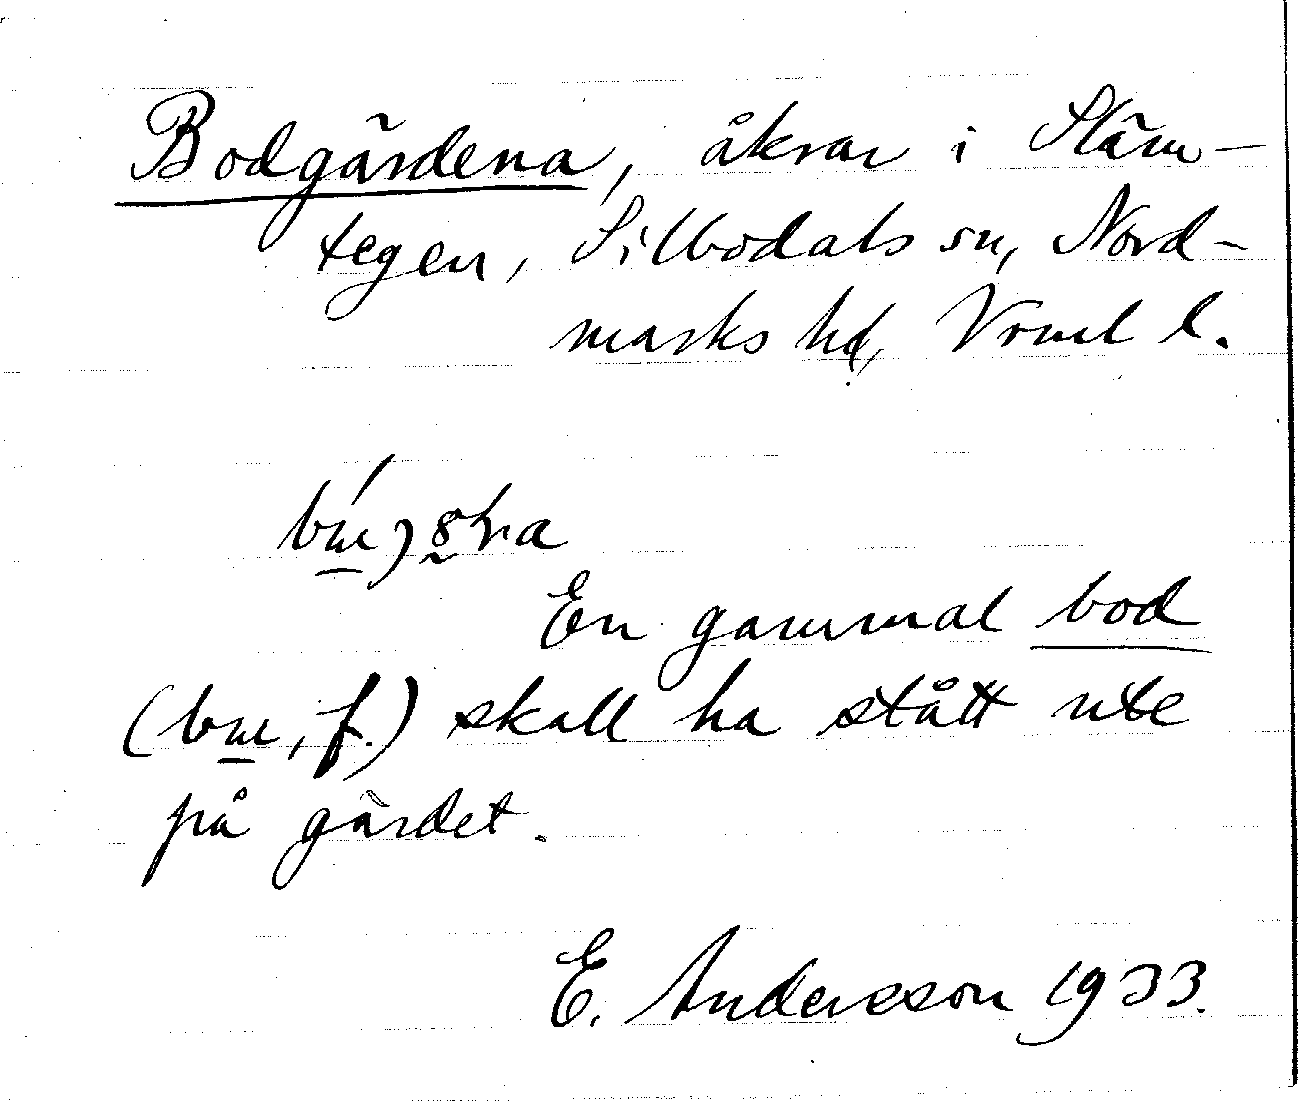 Bodgärdena, åkrar i Släm-
tegen, Silbodals sn, Nord-
marks hd, Vrml l.
En gammal bod
(bɯ, f.) skall ha stått ute
på gärdet.
E. Andersson 1933.